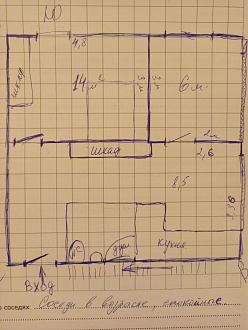 Ю
4,8
шкаф
14 м²
6 м.
2м
шкаф
2,6
8,5
Кухня
ВХОД
о соседях Соседи в возрасте, спокойные